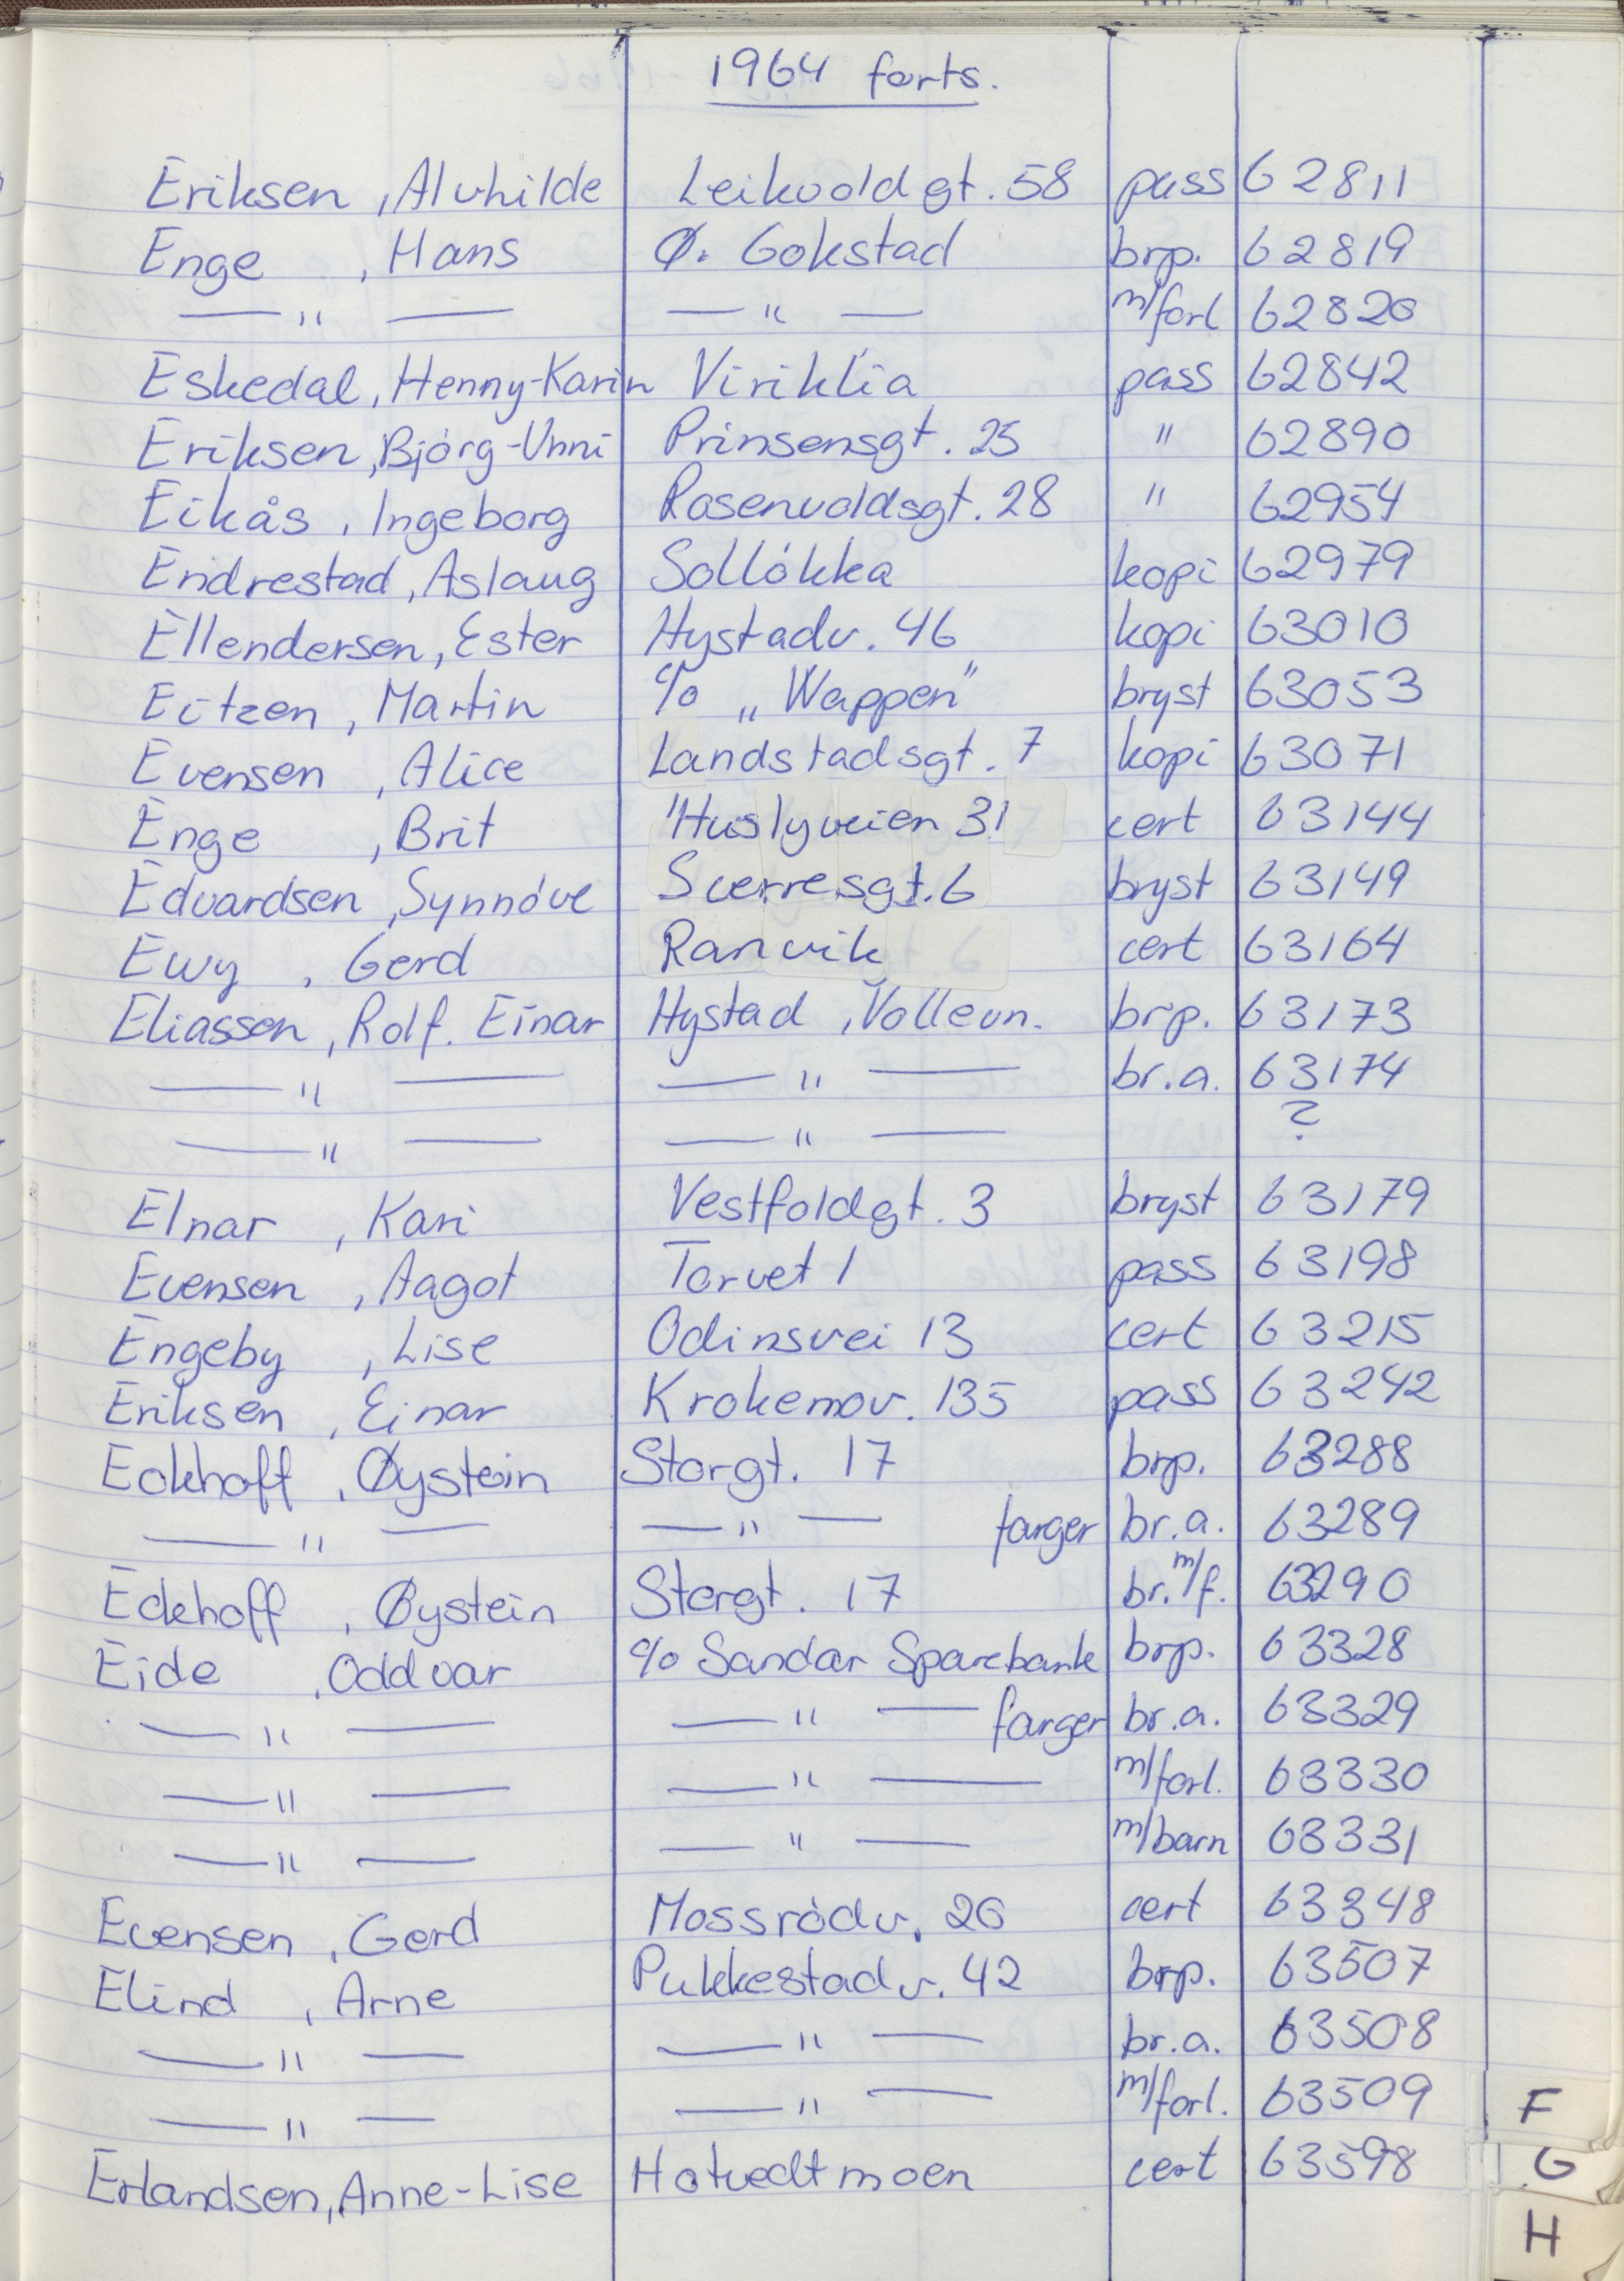 1964 forts.
Eriksen, Alvhilde Leikvoldgt. 58 pass 62811
Enge, Hans Ø. Gokstad brp. 62819
— " — — " — m/forl 62820
Eskedal, Henny-Karin Viriklia pass 62842
Eriksen, Bjórg-Unni Prinsensgt. 25 " 62890
Eikås, Ingeborg Rosenvoldsgt. 28 " 62954
Endrestad, Aslaug Sollókka kopi 62979
Ellendersen, Ester Hystadv. 46 kopi 63010
Eitzen, Martin c/o „Wappen" bryst 63053
Evensen, Alice Landstadsgt. 7 kopi 63071
Enge, Brit Huslyveien 31 cert 63144
Edvardsen, Synnóve Sverresgt. 6 bryst 63149
Ewy, Gerd Ranvik cert 63164
Eliassen, Rolf. Einar Hystad, Vollevn. brp. 63173
— " — — " — br.a. 63174
— " — — " — ?
Elnar, Kari Vestfoldgt. 3 bryst 63179
Evensen, Aagot Torvet 1 pass 63198
Engeby, Lise Odinsvei 13 cert 63215
Eriksen, Einar Krokemov. 135 pass 63242
Eckhoff, Øystein Storgt. 17 brp. 63288
— " — — " — farger br.a. 63289
Eckhoff, Øystein Storgt. 17 br. m/f. 63290
Eide, Oddvar c/o Sandar Sparebank brp. 63328
— " — — " — farger br.a. 63329
— " — — " — m/forl. 63330
— " — — " — m/barn 63331
Evensen, Gerd Mossródv. 26 cert 63348
Elind, Arne Pukkestadv. 42 brp. 63507
— " — — " — br.a. 63508
— " — — " — m/forl. 63509
Erlandsen, Anne-Lise Hotvedtmoen cert 63598
F
G
H